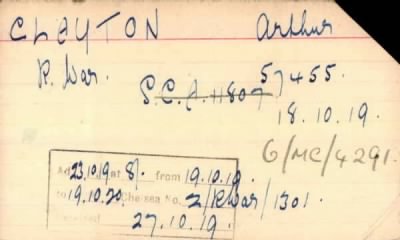 CLAYTON Arthur
R. War. 57455.
S.C.A. 11807
18.10.19.
G/MC/4291.
Ad 23.10.19. at 8/- from 19.10.19.
to 19.10.20. Chelsea No. 2/RWar/1301.
27.10.19.